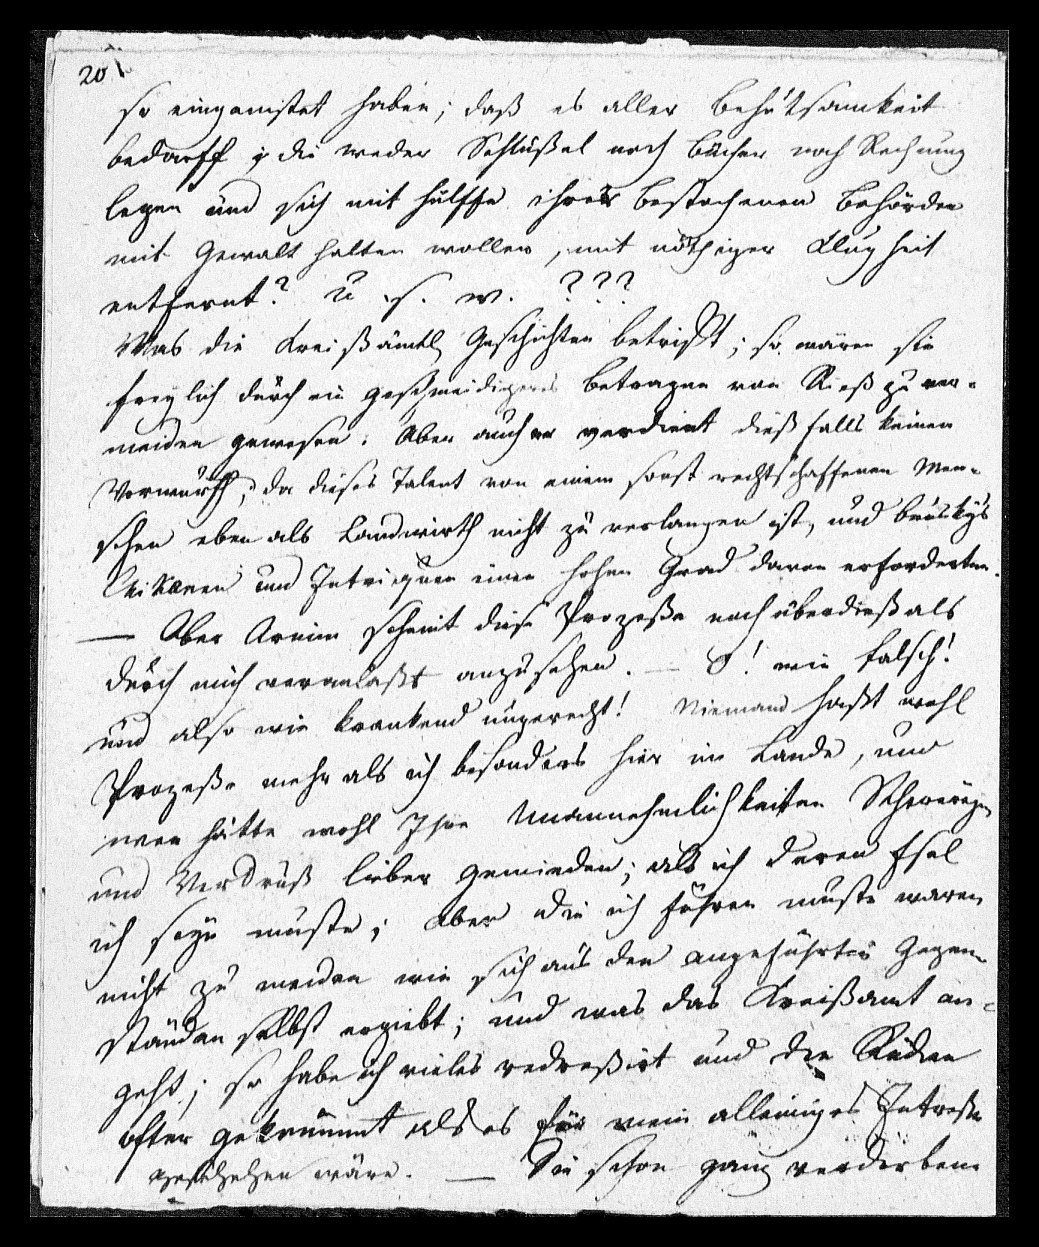 20
so eingenistet haben; daß es aller Behutsamkeit
bedarff; die weder Schlüßel noch Bücher noch Rechnung
legen und sich mit hülffe ihrer bestochenen Behörden
mit Gewalt halten wollen, mit nöthiger Klugheit
entfernt? u. s. w. ???
Was die Kreißämtl Geschichten betrifft; so wären sie
freylich durch ein geschmeidigeres Betragen von Rieß zu ver-
meiden gewesen. Aber auch er verdient dießfalls keinen
Vorwurf; da dieses Talent von einem sonst rechtschaffenen Men-
schen eben als Landwirth nicht zu verlangen ist, und
Chikanen und Intriquen einen hohen Grad davon erforderten.
— Aber Arnim scheint diese Prozeße noch überdieß als
durch mich veranlaßt anzusehen. — O! wie falsch!
und also wie krankend ungerecht! Niemand haßt wohl
Prozeße mehr als ich besonders hier im Lande, und
wer hätte wohl Ihre Unannehmlichkeiten
und Verdruß lieber gemieden; als ich deren Esel
ich seyn muste; Aber die ich führen muste waren
nicht zu meiden wie sich aus den angeführten Gegen-
ständen selbst ergiebt; und was das Kreißamt an-
geht; so habe ich vieles redreßirt und den Rücken
öfter gekrümmt als es für mein alleiniges Intreße
geschehen wäre. — Die schon ganz verdorbene